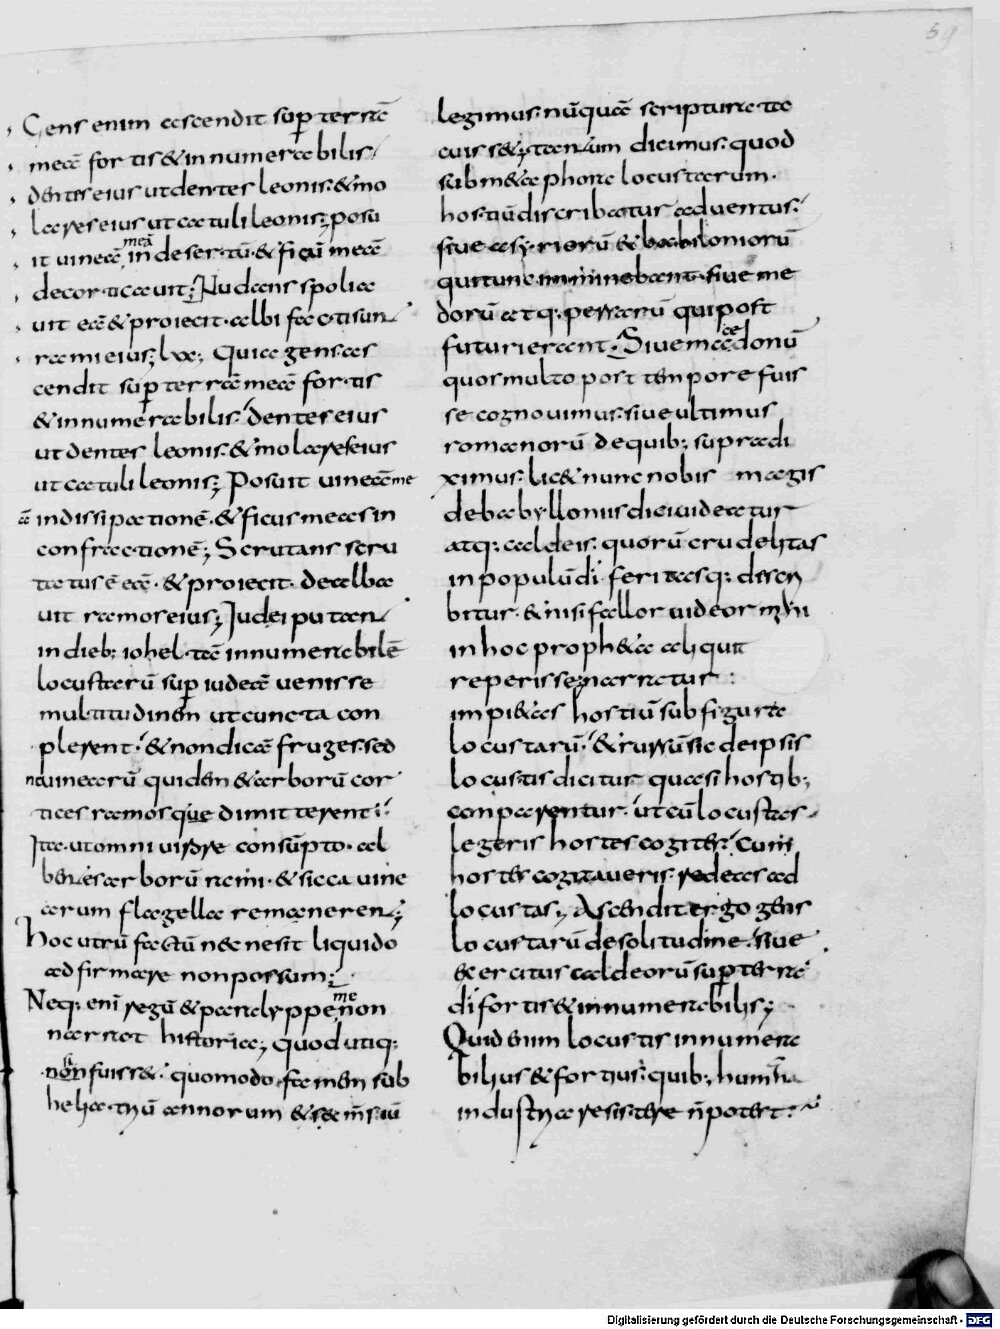 59
Gens enim ascendit sup terrā
meā fortis & innumerabilis.
dentes eius ut dentes leonis. & mo
lares eius ut catuli leonis; posu
it uineā meā in desertū. & ficū meā
decorticauit; Nudans spolia
uit eā & proiecit. albi facti sunt
rami eius; lxx; Quia gens as
cendit sup terrā meā fortis
& innumerabilis. dentes eius
ut dentes leonis. & molares eius
ut catuli leonis; Posuit uineā me
ā in dissipationē. & ficus meas in
confractionē; Scrutans scru
tatus ē eā. & proiecit. dealba
uit ramos eius; Judei putant
in dieb; iohel. tā innumerabilē
locustarū sup iudeā uenisse
multitudinem ut cuncta con
plerent. & non dicā fruges. sed
nec uinearū quidem & arborū cor
tices ramosque dimitterent.
Ita. ut omni uirore consūpto. al
bentes arborū rami. & sicca uine
arum flagella remanerent;
hoc utrū factū nec ne sit liquido
adfirmare non possum;
Neq; enī regū & paralyppemenon
narrat historia; quod utiq;
si non fuisset. quomodo famem sub
helia. triū annorum & sex m̄siū
legimus. nūquā scriptura ta
cuisset; tantum dicimus. quod
sub metaphora locustarum.
hostiū discribatur aduentus.
siue assyriorū & babiloniorū
qui tunc inminebant. siue me
dorū atq; persarū qui post
futuri erant. Siue macedonū
quos multo post tempore fuis
se cognouimus. siue ultimus
romanorū de quib; supra di
ximus. licet nunc nobis magis
de babylloniis dici uideatur
atq; caldeis. quorū crudelitas
in populū dī feritasq; discri
bitur. & nisi fallor uideor mihi
in hoc propheta aliquit
reperisse; narratur
impietas hostiū sub figura
locustarū. & rursū sic de ipsis
locustis dicitur quasi hostib;
conparentur. ut cū locustas
legeris hostes cogites. cum
hostes cogitaueris. redeas ad
locustas; Ascendit ergo gens
locustarū de solitudine. siue
exercitus caldeorū sup terrā
dī fortis & innumerabilis;
Quid enim locustis innumera
bilius & fortius. quib; humana
industria resistere n̄ potest.
Digitalisierung gefördert durch die Deutsche Forschungsgemeinschaft - DFG